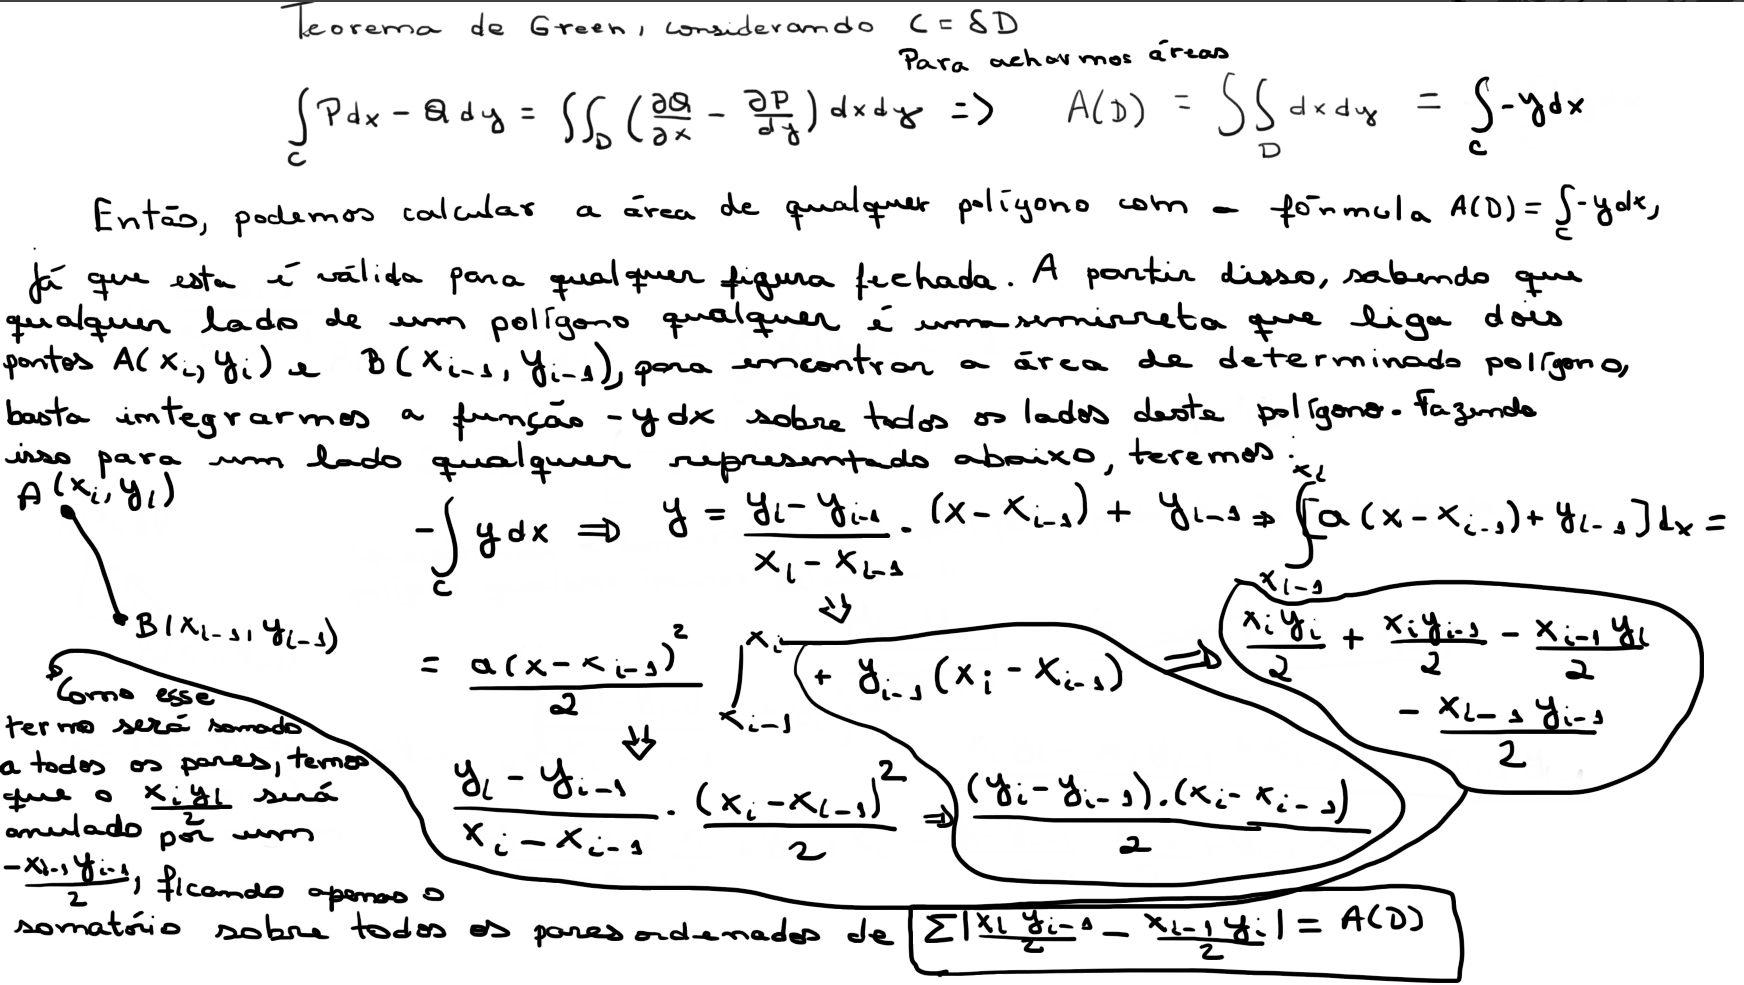 Teorema de Green, considerando C = δD
Para acharmos áreas
∫_C Pdx - Qdy = ∬_D (∂Q/∂x - ∂P/dy) dxdy => A(D) = ∬_D dxdy = ∫_C -ydx
Então, podemos calcular a área de qualquer polígono com a fórmula A(D) = ∫_C -ydx,
Já que esta é válida para qualquer figura fechada. A partir disso, sabendo que
qualquer lado de um polígono qualquer é uma semirreta que liga dois
pontos A(x_i, y_i) e B(x_{i-1}, y_{i-1}), para encontrar a área de determinado polígono,
basta integrarmos a função -ydx sobre todos os lados deste polígono. Fazendo
isso para um lado qualquer representado abaixo, teremos:
A(x_i, y_i)
-∫_C ydx ⇒ y = (y_i - y_{i-1})/(x_i - x_{i-1}) . (x - x_{i-1}) + y_{i-1} ⇒ ∫_{x_{i-1}}^{x_i} [a(x - x_{i-1}) + y_{i-1}]dx =
B(x_{i-1}, y_{i-1})
= a(x - x_{i-1})²/2 |_{x_{i-1}}^{x_i} + y_{i-1}(x_i - x_{i-1}) ⇒ x_i y_i/2 + x_i y_{i-1}/2 - x_{i-1} y_i/2
- x_{i-1} y_{i-1}/2
(y_i - y_{i-1})/(x_i - x_{i-1}) . (x_i - x_{i-1})²/2 ⇒ (y_i - y_{i-1}).(x_i - x_{i-1})/2
Como esse
termo será somado
a todos os pares, temos
que o x_i y_i/2 será
anulado por um
-x_{i-1} y_{i-1}/2, ficando apenas o
somatório sobre todos os pares ordenados de Σ|x_i y_{i-1}/2 - x_{i-1} y_i/2| = A(D)